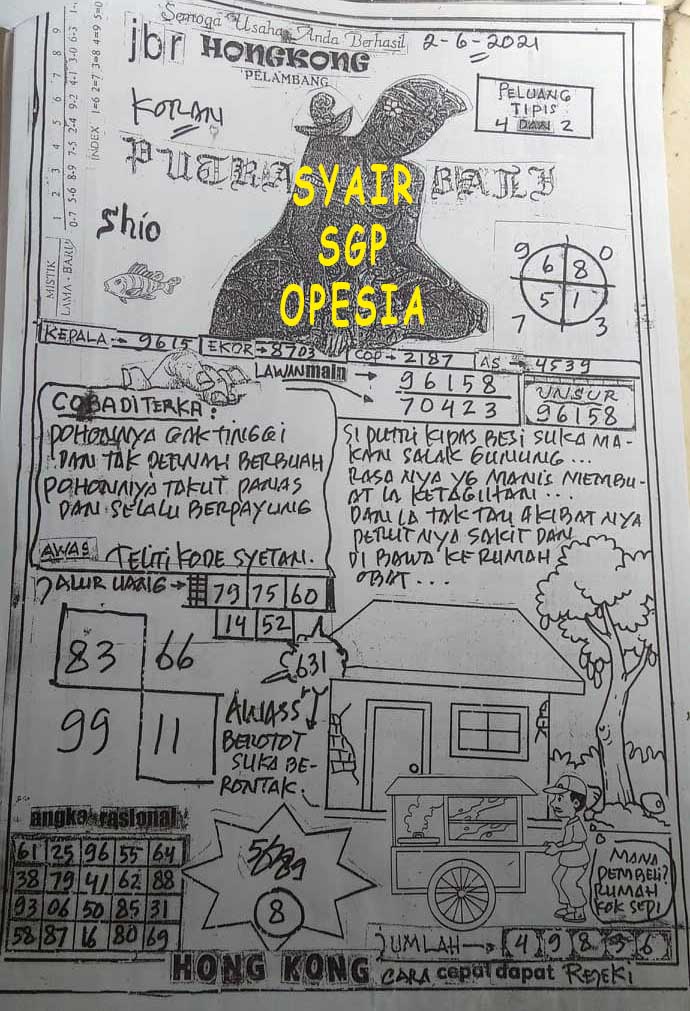 Semoga Usaha Anda Berhasil
jbr HONGKONG
PELAMBANG
2-6-2021
KORAN
PELUANG
TIPIS
4 DAN 2
PUTRA BALI
SYAIR
SGP
OPESIA
Shio
MISTIK
LAMA - BARU
1 2 3 4 5 6 7 8 9
0-7 5-6 8-9 7-5 2-4 9-2 4-1 3-0 6-3
INDEX 1=6 2=7 3=8 4=9 5=0
9 0
6 8
5 1
7 3
KEPALA → 9615 EKOR → 8703 COP → 2187 AS → 4539
LAWAN main → 96158
70423
UNSUR
96158
COBA DITERKA :
POHONNYA GAK TINGGI
DAN TAK PERNAH BERBUAH
POHONNYA TAKUT PANAS
DAN SELALU BERPAYUNG
SI PUTRI KIPAS BESI SUKA MA-
KAN SALAK GUNUNG ...
RASA NYA YG MANIS MEMBU-
AT IA KETAGIHAN ....
DAN IA TAK TAU AKIBAT NYA
PERUT NYA SAKIT DAN
DI BAWA KE RUMAH
OBAT ...
AWAS TELITI KODE SYETAN.
JALUR UANG → 79 75 60
14 52
83 66
99 11
631
AWASS
BEROTOT
SUKA BE-
RONTAK.
angka rasional
61 25 96 55 64
38 79 41 62 88
93 06 50 85 31
58 87 16 80 69
8
MANA
PEMBELI?
RUMAH
KOK SEPI
JUMLAH → 4 9 8 3 6
HONG KONG CARA cepat dapat REJEKI